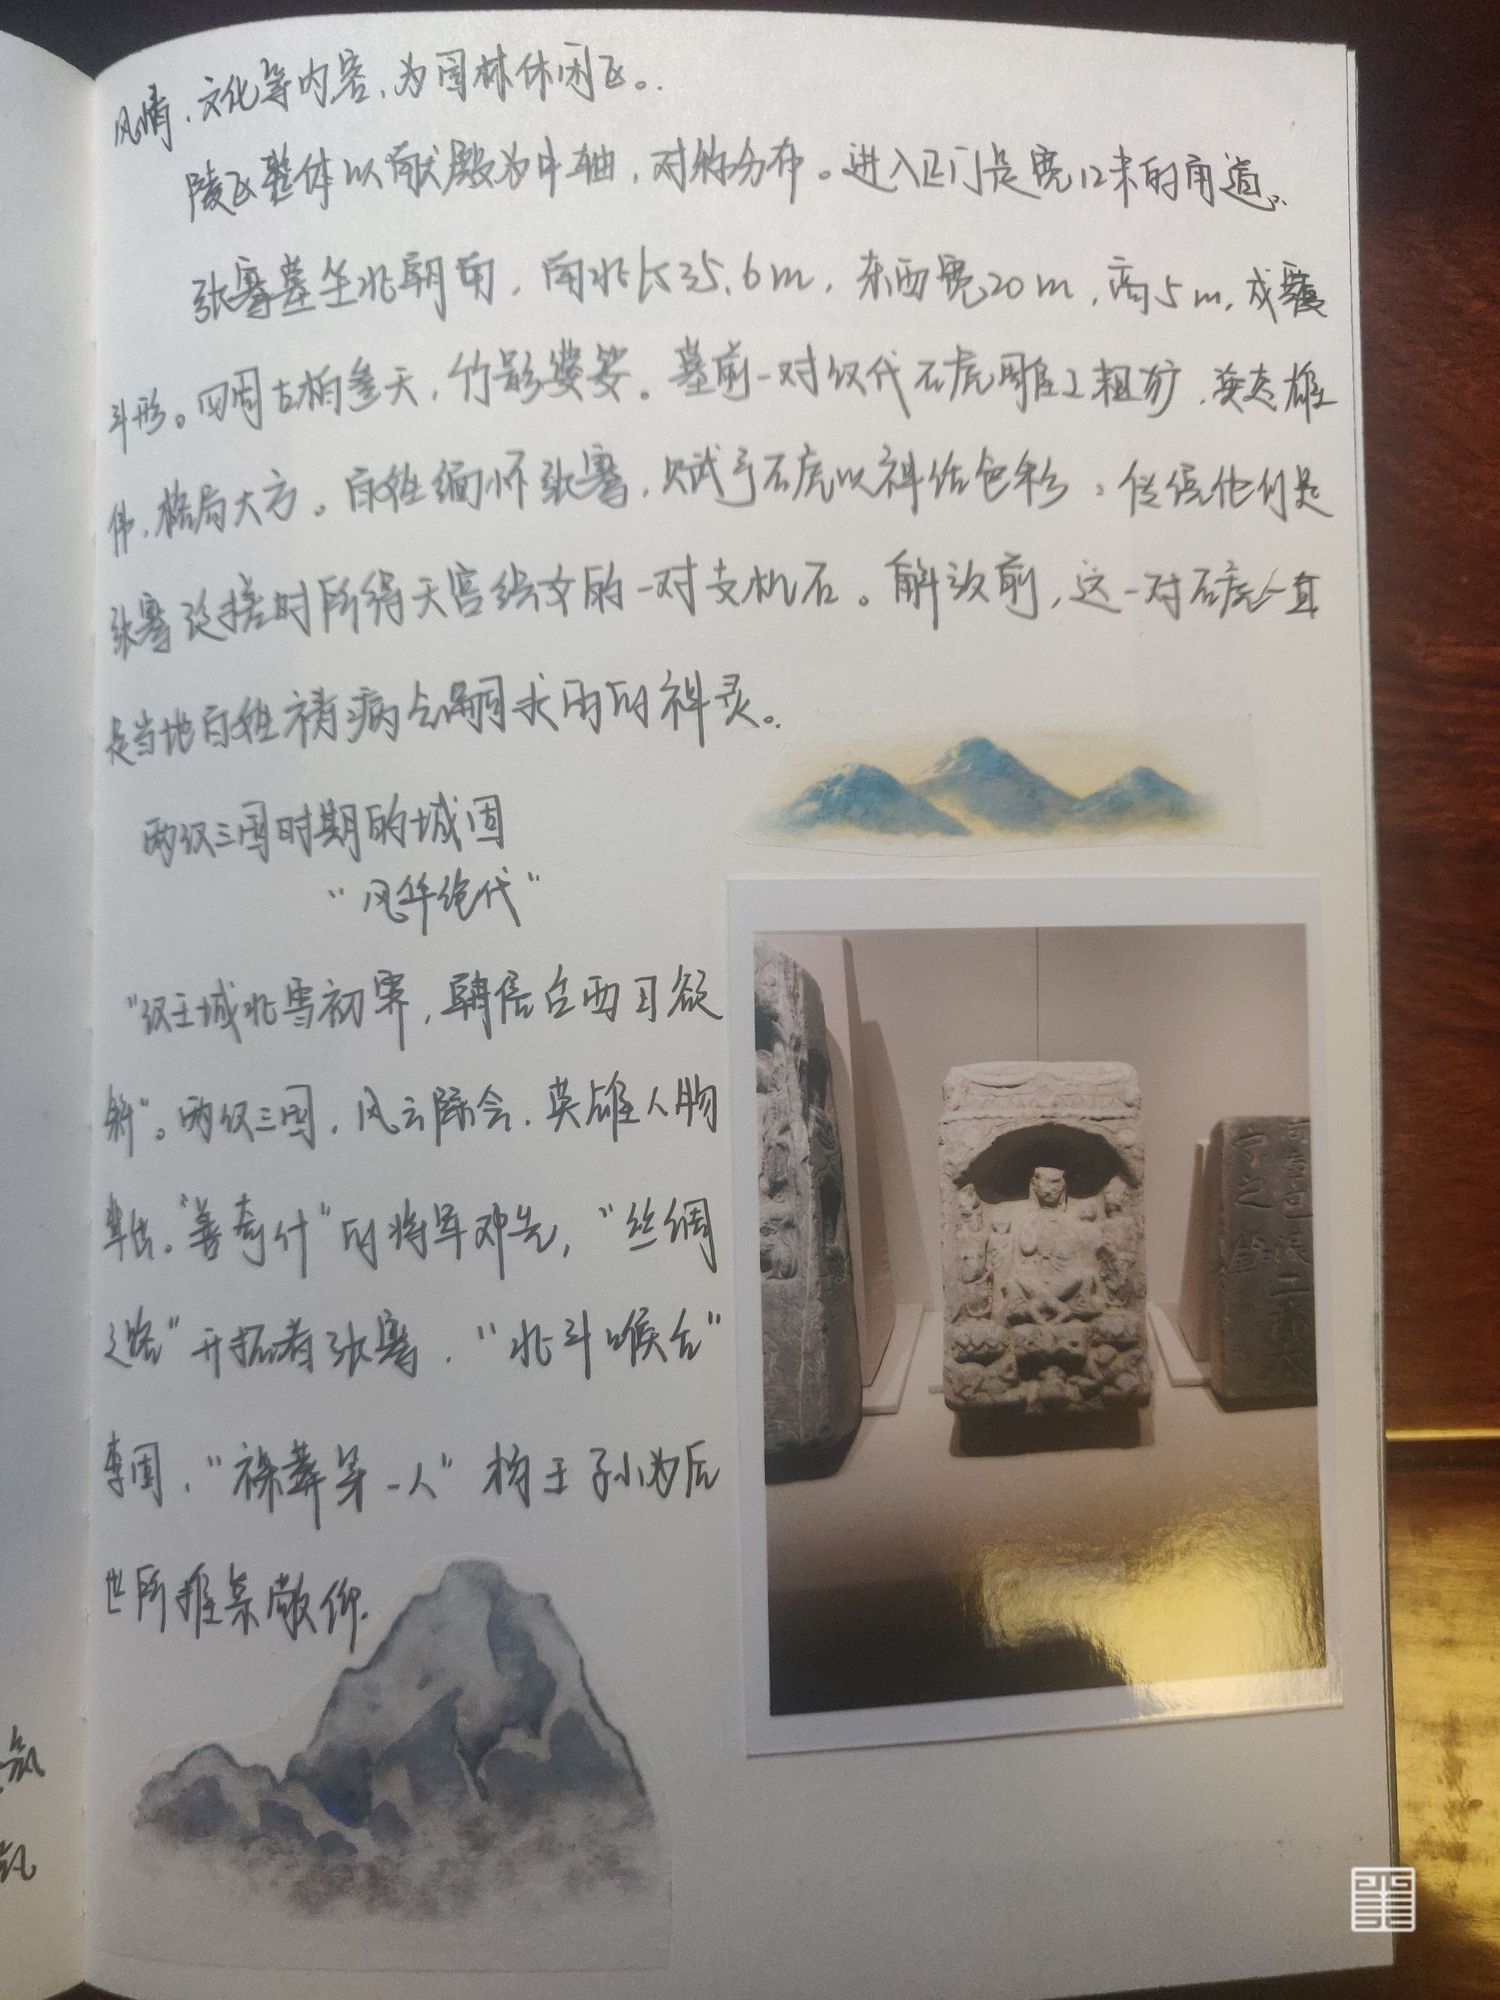 风情、文化等内容，为园林休闲区。
陵区整体以献殿为中轴，对称分布。进入正门是宽12米的甬道。
张骞墓坐北朝南，南北长35.6m，东西宽20m，高5m，成覆
斗形。四周古柏参天，竹影婆娑。墓前一对汉代石虎雕工粗犷，英杰雄
伟，格局大方。百姓缅怀张骞，赋予石虎以神话色彩，传信他们是
张骞泛槎时所得天宫织女的一对支机石。解放前，这一对石虎一直
是当地百姓祷病会嗣求雨的神灵。
两汉三国时期的城固
"风华绝代"
"汉王城北雪初霁，韩信台西日欲
斜"。两汉三国，风云际会，英雄人物
辈出。"善奇计"的将军邓先，"丝绸
之路"开拓者张骞，"北斗喉舌"
李固，"裸葬第一人"杨王孙为后
世所推崇敬仰.
宁之